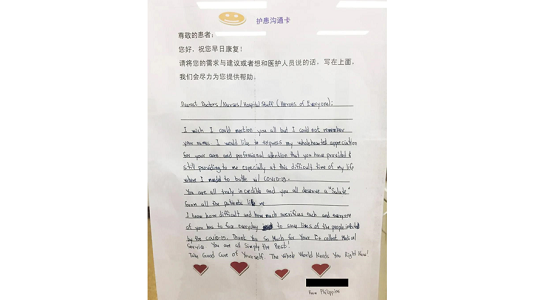 护患沟通卡
尊敬的患者：
您好，祝您早日康复！
请将您的需求与建议或者想和医护人员说的话，写在上面，
我们会尽力为您提供帮助。
Dearest Doctors/Nurses/Hospital Staff (Heroes of Everyone):
I wish I could mention you all but I could not remember
your names. I would like to express my wholehearted appreciation
for your care and professional attention that you have provided &
still providing to me especially at this difficult time of my life
where I need to battle w/ COVID-19.
You are all truly incredible and you all deserve a "Salute"
from all the patients like me
I know how difficult and how much sacrifices each and everyone
of you has to face everyday to save lives of the people infected
by the COVID-19. Thank You So Much for Your Excellent Medical
Service. You are all Simply the Best!
Take Good Care of Yourself. The Whole World Needs You Right Now!
From Philippines